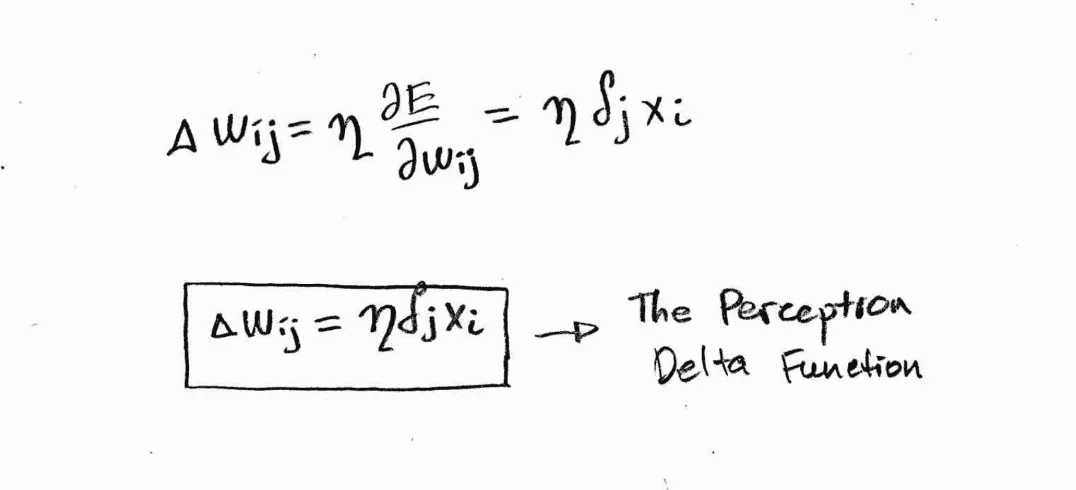 Δ wij = η ∂E/∂wij = η δj xi
Δ wij = η δj xi → The Perception
Delta Function